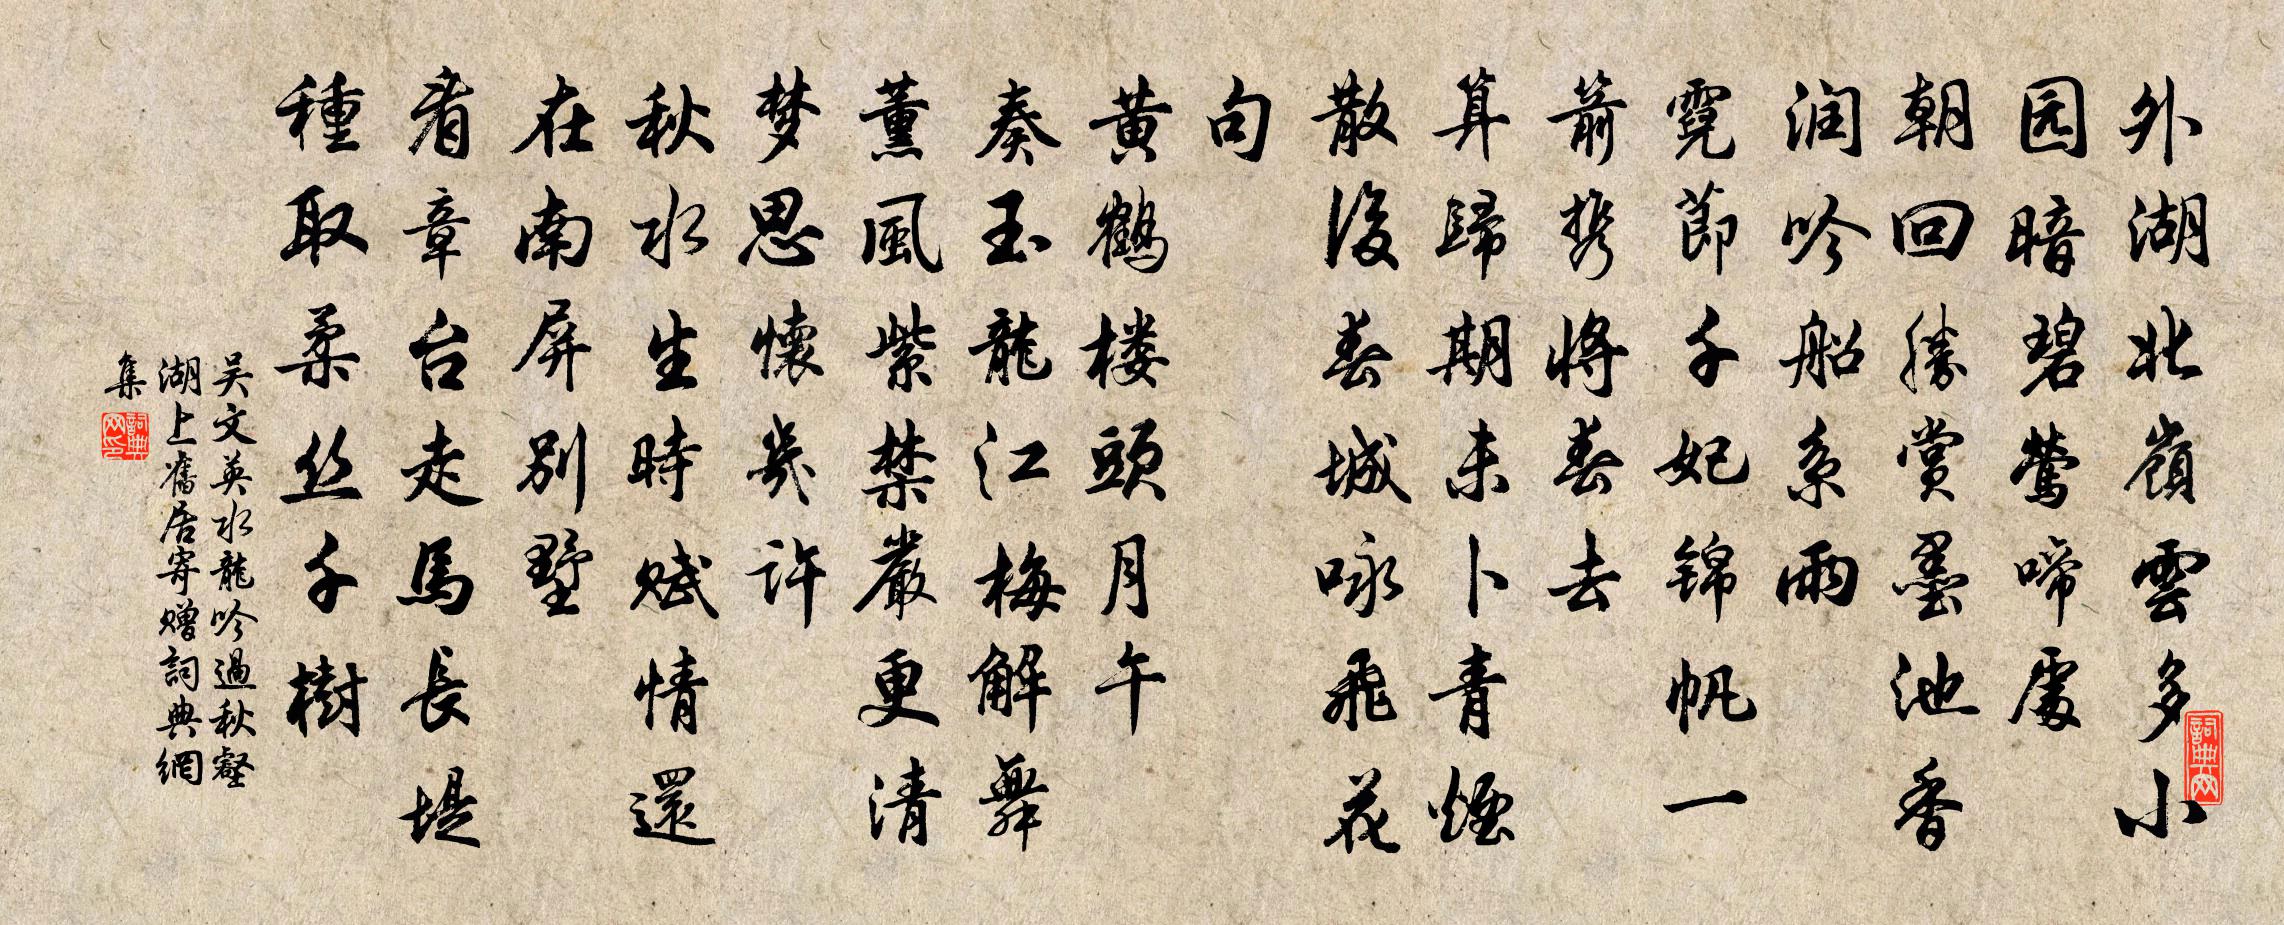 外湖北嶺雲多小
园暗碧鶯啼處
朝回勝賞墨池香
润吟船系雨
霓節千妃錦帆一
箭携將春去
算歸期未卜青煙
散後春城咏飛花
句
黄鶴楼頭月午
奏玉龍江梅解舞
薰風紫禁嚴更清
梦思懷幾許
秋水生時赋情還
在南屏别墅
看章台走馬長堤
種取柔丝千樹
吴文英水龍吟過秋壑
湖上舊居寄赠詞典網
集
詞典网印
詞典网